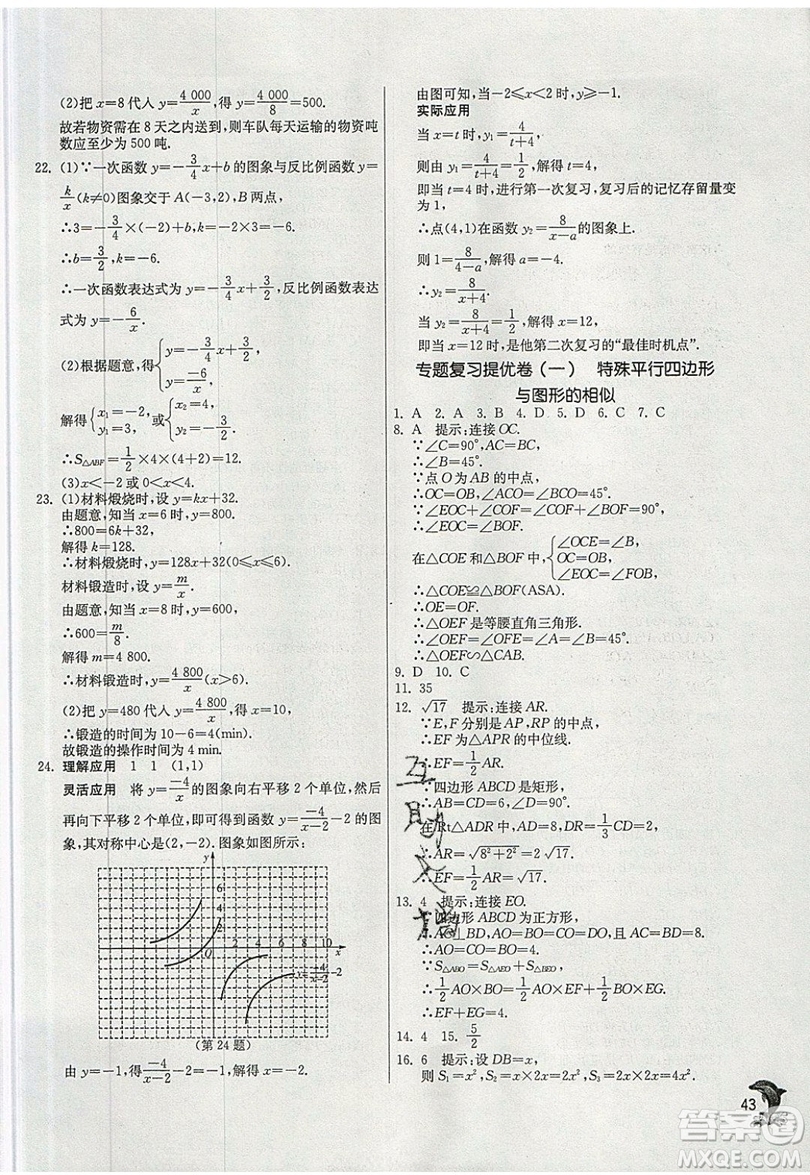 (2)把 x=8 代入 y=4 000/x,得 y=4 000/8=500.
故若物资需在 8 天之内送到,则车队每天运输的物资吨
数应至少为 500 吨.
22. (1)∵一次函数 y=-3/4x+b 的图象与反比例函数 y=
k/x(k≠0)图象交于 A(-3,2),B 两点,
∴3=-3/4×(-2)+b,k=-2×3=-6.
∴b=3/2,k=-6.
∴一次函数表达式为 y=-3/4x+3/2,反比例函数表达
式为 y=-6/x.
(2)根据题意,得{y=-3/4x+3/2, y=-6/x,
解得{x₁=-2, y₁=3, 或{x₂=4, y₂=-3/2.
∴S△ABF=1/2×4×(4+2)=12.
(3)x<-2 或 0<x<4.
23. (1)材料煅烧时,设 y=kx+32.
由题意,知当 x=6 时,y=800.
∴800=6k+32,
解得 k=128.
∴材料煅烧时,y=128x+32(0≤x≤6).
材料锻造时,设 y=m/x.
由题意,知当 x=8 时,y=600,
∴600=m/8.
解得 m=4 800.
∴材料锻造时,y=4 800/x(x>6).
(2)把 y=480 代入 y=4 800/x,得 x=10.
∴锻造的时间为 10-6=4(min).
故锻造的操作时间为 4 min.
24. 理解应用 1 1 (1,1)
灵活应用 将 y=-4/x的图象向右平移 2 个单位,然后
再向下平移 2 个单位,即可得到函数 y=-4/(x-2)-2 的图
象,其对称中心是(2,-2).图象如图所示:
y
6
4
2
O
2 4 6 8 10 x
y=-4/(x-2)-2
(第 24 题)
由 y=-4/(x-2)-2=-1,得 -4/(x-2)=1,解得 x=-2.
由图可知,当-2≤x<2 时,y≥-1.
实际应用
当 x=t 时,y₁=4/(t+4),
则由 y₁=4/(t+4)=1/2,解得 t=4,
即当 t=4 时,进行第一次复习,复习后的记忆存留量变
为 1,
∴点(4,1)在函数 y₂=8/(x-a)的图象上.
则 1=8/(4-a),解得 a=-4.
∴y₂=8/(x+4).
当 y₂=8/(x+4)=1/2,解得 x=12.
即当 x=12 时,是他第二次复习的“最佳时机点”.
专题复习提优卷(一) 特殊平行四边形
与图形的相似
1. A 2. A 3. B 4. D 5. D 6. C 7. C
8. A 提示:连接 OC.
∵∠C=90°,AC=BC,
∴∠B=45°.
∵点 O 为 AB 的中点,
∴OC=OB,∠ACO=∠BCO=45°.
∵∠EOC+∠COF=∠COF+∠BOF=90°,
∴∠EOC=∠BOF.
在△COE 和△BOF 中,{∠OCE=∠B, OC=OB, ∠EOC=∠FOB,
∴△COE≌△BOF(ASA).
∴OE=OF.
∴△OEF 是等腰直角三角形.
∴∠OEF=∠OFE=∠A=∠B=45°.
∴△OEF∽△CAB.
9. D 10. C
11. 35
12. √17 提示:连接 AR.
∵E,F 分别是 AP,RP 的中点,
∴EF 为△APR 的中位线.
∴EF=1/2AR.
∵四边形 ABCD 是矩形,
∴AB=CD=6,∠D=90°.
在 Rt△ADR 中,AD=8,DR=1/3CD=2,
∴AR=√(8²+2²)=2√17.
∴EF=1/2AR=√17.
13. 4 提示:连接 EO.
∵四边形 ABCD 为正方形,
∴AO⊥BD,AO=BO=CO=DO=4,BD=8.
∵S△ABO=S△AEO+S△BEO,
∴1/2AO×BO=1/2AO×EF+1/2BO×EG.
∴EF+EG=4.
14. 4 15. 5/2
16. 6 提示:设 DB=x,
则 S₁=x²,S₂=x×2x=2x²,S₃=2x×2x=4x².
43
互
时
答案圈
MXQE.COM